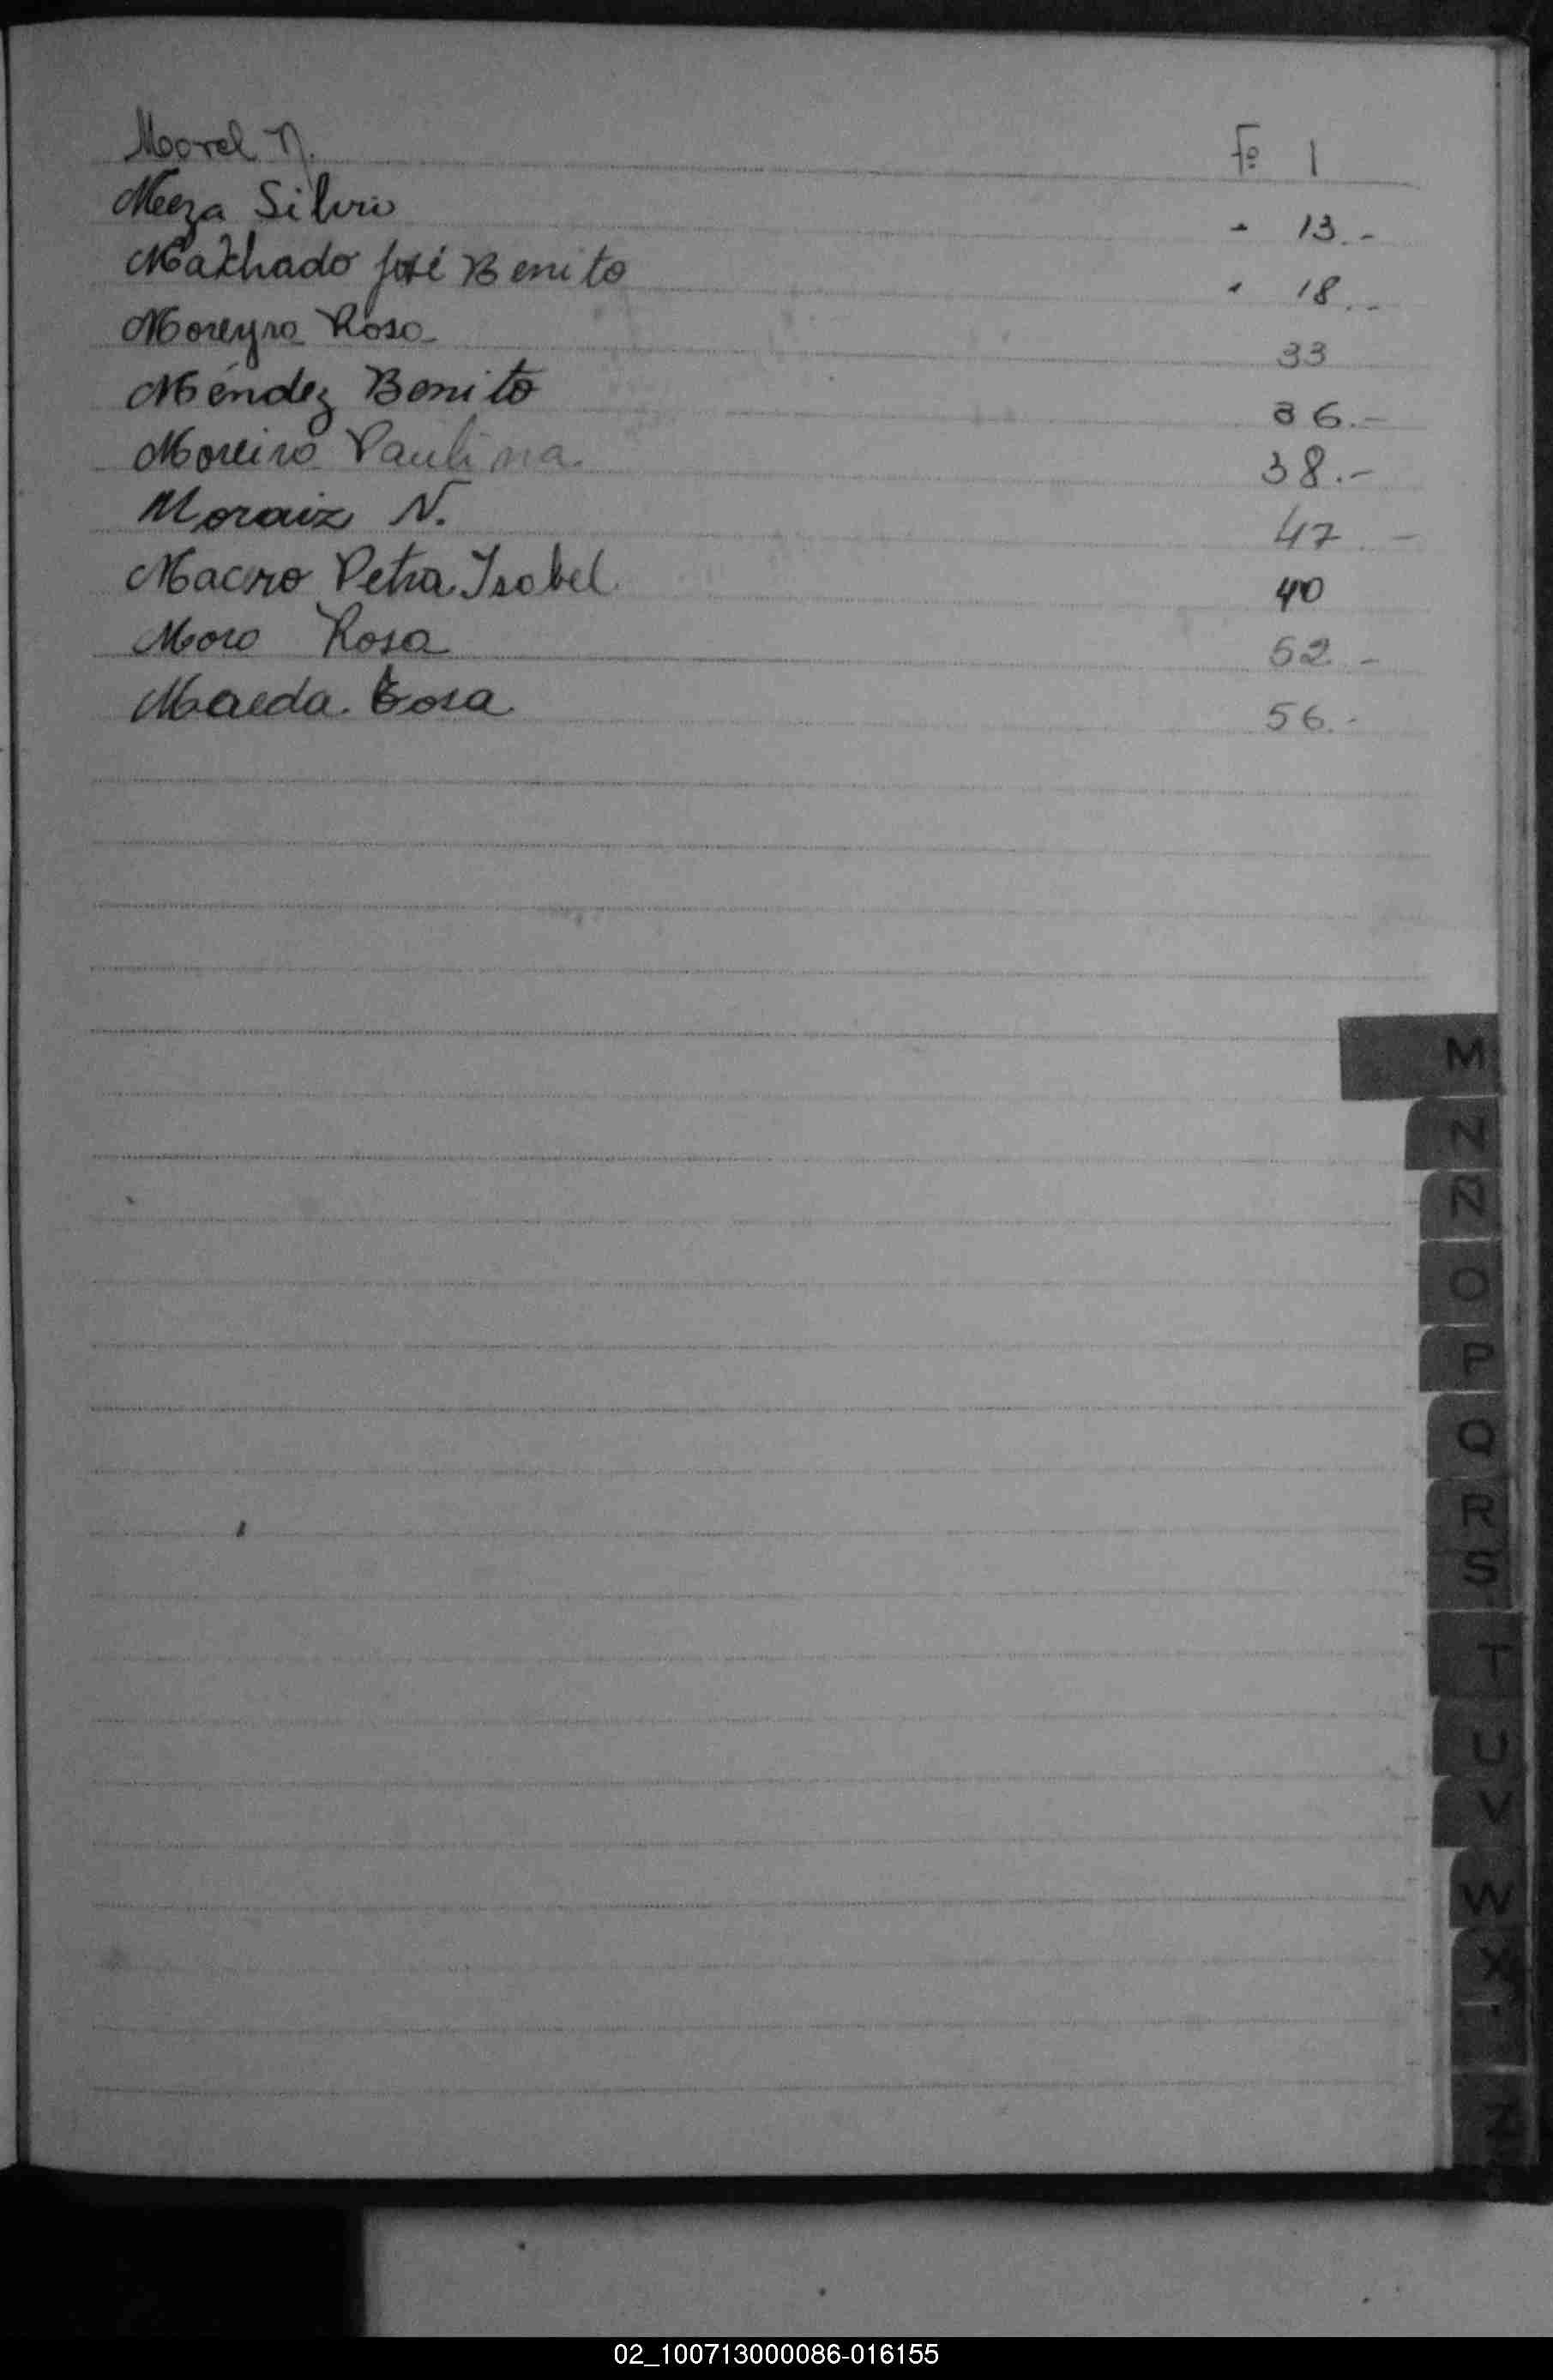 Morel N. Fº 1
Meza Silvio " 13.-
Machado José Benito " 18.-
Moreyra Rosa 33
Méndez Benito 36.-
Moreira Paulina 38.-
Moraiz N. 47.-
Petra Isabel 40
Moro Rosa 52.-
Maeda 56.-
M
N
Ñ
O
P
Q
R
S
T
U
V
W
X
Z
02_100713000086-016155